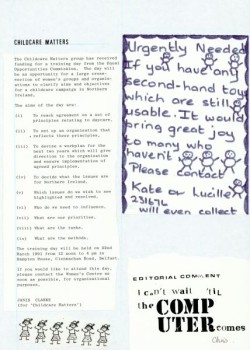 CHILDCARE MATTERS
The Childcare Matters group has received
funding for a training day from the Equal
Opportunities Commission. The day will
be an opportunity for a large cross-
section of women's groups and organis-
ations to clarify aims and objectives
for a childcare campaign in Northern
Ireland.
The aims of the day are:
(i) To reach agreement on a set of
principles relating to daycare.
(ii) To set up an organisation that
reflects these principles.
(iii) To devise a workplan for the
next two years which will give
direction to the organisation
and ensure implementation of
agreed principles.
(iv) To decide what the issues are
for Northern Ireland.
(v) Which issues do we wish to see
highlighted and resolved.
(vi) Who do we need to influence.
(vii) What are our priorities.
(viii) What are the costs.
(ix) What are the methods.
The training day will be held on 22nd
March 1993 from 10 a.m to 4 pm in
House, Belfast.
If you would like to attend this day,
please contact the Women's Centre as
soon as possible, for organisational
purposes.
CLARKE
(for "Childcare Matters")
Urgently Needed
If you have any
second-hand toys
which are still
usable. It would
bring great joy
to many who
haven't
Please contact
Kate or Lucille
231676
will even collect
EDITORIAL COMMENT
I can't wait 'til
the COMP
UTER comes
Chris